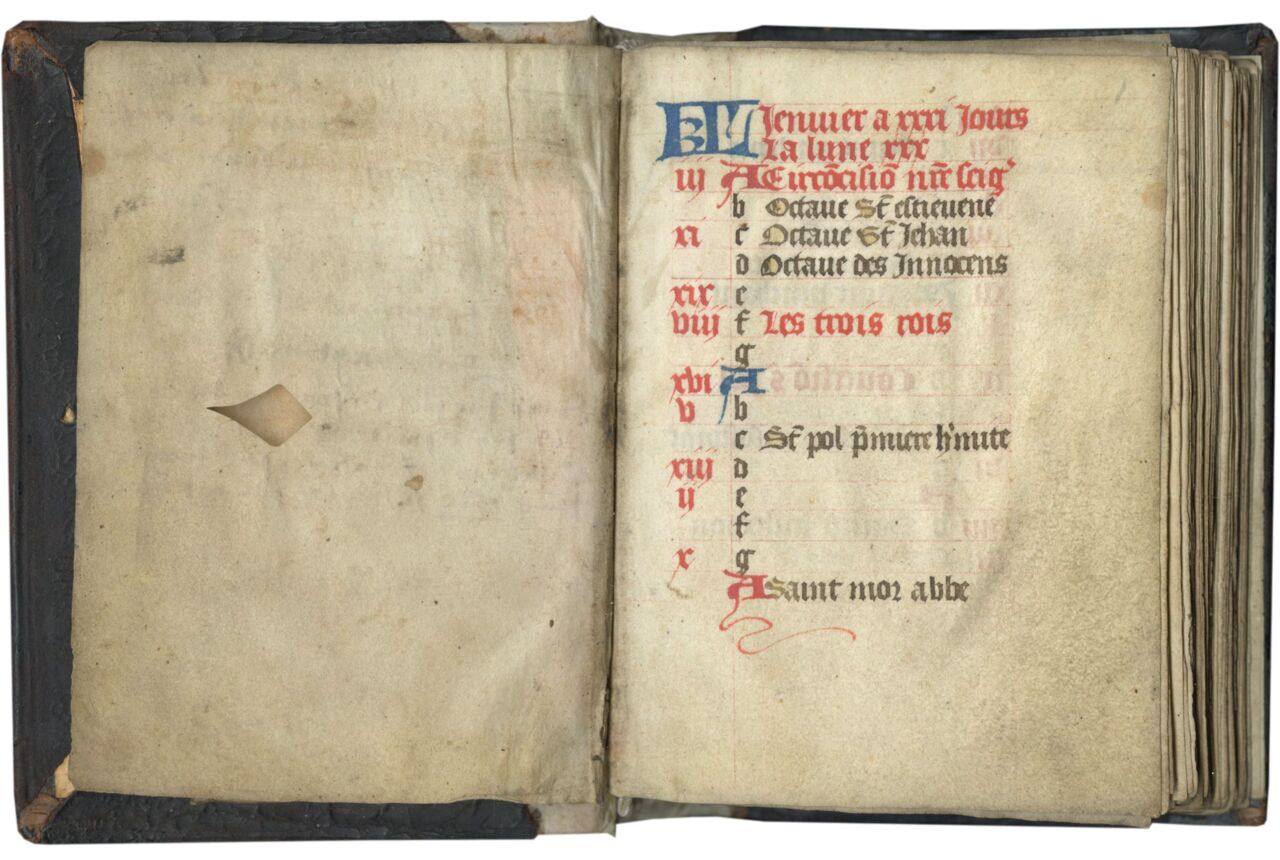 KL Jenuier a xxxi Jours
La lune xxx
iij A Circō̄cisiō nr̄e seig'
b Octaue St̄ estieuene
xi c Octaue St̄ Jehan
d Octaue des Innocens
xix e
viij f Les trois rois
g
xvi A
v b
c St̄ pol p̄miere h'mite
xiij d
ij e
f
x g
A Saint mor abbe